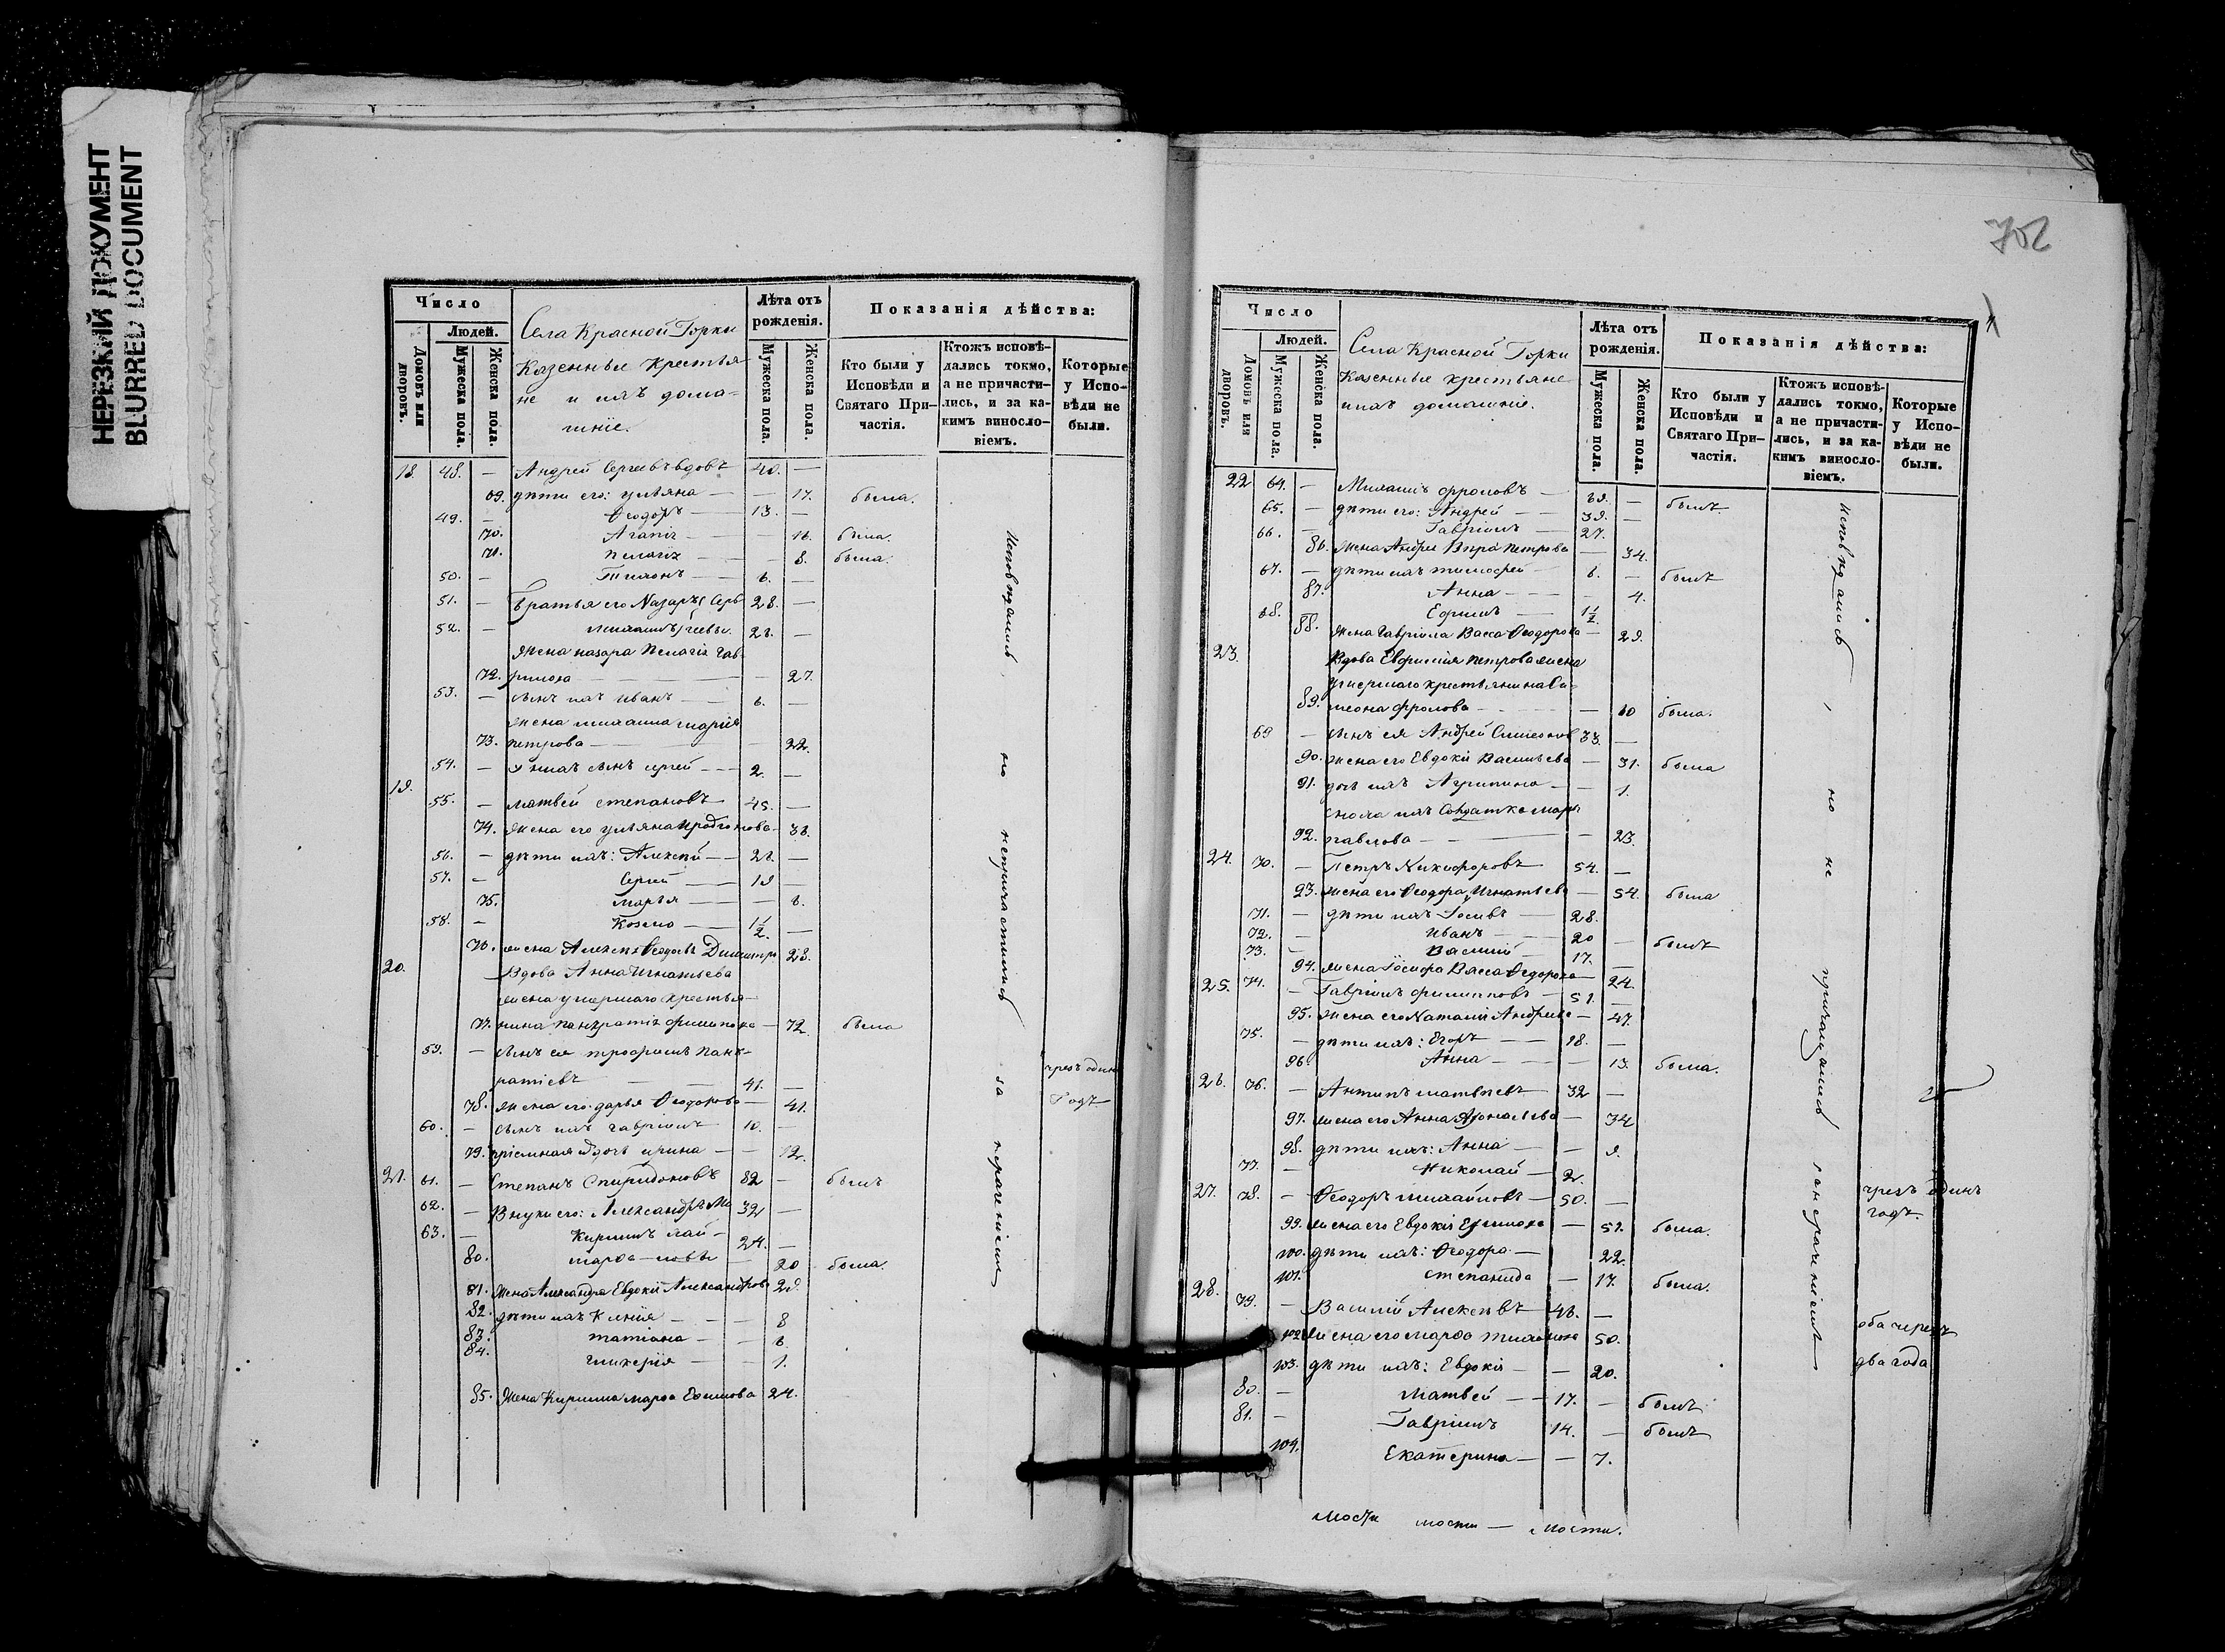 НЕРЕЗКИЙ ДОКУМЕНТ
BLURRED DOCUMENT
Число
Людей.
Домовъ или дворовъ.
Мужеска пола.
Женска пола.
Села Красной Горки
Казенные Крестья
не и ихъ дома-
шніе.
Лѣта отъ рожденія.
Мужеска пола.
Женска пола.
Показанія дѣйства:
Кто были у Исповѣди и Святаго При-частія.
Ктожъ исповѣ-дались токмо, а не причасти-лись, и за ка-кимъ виносло-віемъ.
Которые у Испо-вѣди не были.
18. 48. — Андрей Сергеевъ вдовъ 40. —
69. дѣти его: Ульяна — — 17. была.
49. — Ѳеодоръ — 13. —
70. Агапія — 16. была.
71. Пелагія — — 8. была.
50. — Тихонъ — 6. —
51. — братья его Назаръ Серг 28. —
52. — Михаилъ геевы. 22. —
Жена Назара Пелагія Гав-
72. рилова — — 27.
53. — сынъ ихъ Иванъ — 6. —
жена Михаила Марія
73. Петрова — — 22.
54. — У нихъ сынъ Сергей — 2. —
19.
55. — Матвей Степановъ 45. —
74. жена его Ульяна Иродіонова — 38.
56. — дѣти ихъ: Алексѣй — 21. —
57. — Сергей — 19 —
75. Марья — — 6.
58. — Козма — 1½. —
76. жена Алексѣя Ѳеодосья Димитр 28.
20. Вдова Анна Игнатьева
жена умершаго крестья-
77. нина Панкратія Филипова — 72 была
59. — сынъ ея Трофимъ Панк-
ратіевъ — 41. —
78. жена его Дарья Ѳеодорова — 41.
чрезъ одинъ
Годъ
60. — сынъ ихъ Гавріилъ 10. —
79. пріемная дочь Ирина — — 12.
21. 61. — Степанъ Спиридоновъ 82 — былъ
62. — Внуки его: Александръ Ми 32 —
63. — Кирилъ хай- 24. —
80. Марфа — ловы — 20 была.
81. Жена Александра Евдокія Александрова 29.
82. дѣти ихъ Ксенія — — 8
83. Татіана — — 6.
84. Гликерія — — 1.
85. Жена Кирила Марфа Ефимова 24.
Исповѣдались, но непричастились за нерачениемъ
702
Число
Людей.
Домовъ или дворовъ.
Мужеска пола.
Женска пола.
Села Красной Горки
Казенные крестьяне
и ихъ домашніе.
Лѣта отъ рожденія.
Мужеска пола.
Женска пола.
Показанія дѣйства:
Кто были у Исповѣди и Святаго При-частія.
Ктожъ исповѣ-дались токмо, а не причасти-лись, и за ка-кимъ виносло-віемъ.
Которые у Испо-вѣди не были.
22 64. — Михаилъ Фроловъ — 69. — былъ
65. — дѣти его: Андрей — 39. —
66. — Гавріилъ — 27.
86. жена Андрея Вѣра Петрова — 34.
67. — дѣти ихъ Тимофей — 6. — былъ
87. Анна — — 4.
68. Ефимъ — 1½
88. Жена Гавріила Васса Ѳеодорова — 29.
23. Вдова Евфимія Петрова жена
умершаго крестьянина Си-
89. меона Фролова — — 60 была.
69 — сынъ ея Андрей Симеонов 33. —
90. жена его Евдокія Васильева — 31. была
91. дочь ихъ Агрипина — — 1.
сноха ихъ Солдатка Марѳа
92. Павлова — — 23.
24. 70. — Петръ Никифоровъ 54. —
93. жена его Ѳеодора Игнатьева — 54. была
71. — дѣти ихъ Іосифъ — 28.
72. — Иванъ — 20 — былъ
73. — Василій — 17. —
94. жена Іосифа Васса Ѳедорова — 24.
25. 74. — Гавріилъ Филиповъ — 51. —
95. жена его Наталія Андреева — 47.
75. — дѣти ихъ: Егоръ — 18. —
96. Анна — — 13. была.
26. 76. — Антипъ Матвѣевъ 32 —
97. жена его Анна Афонасьева — 34
98. дѣти ихъ: Анна — — 9.
77. — Николай — 2.
27. 78. — Ѳеодоръ Михайловъ — 50. —
чрезъ одинъ
годъ.
99. жена его Евдокія Ефимова — 51. была.
100. дѣти ихъ: Ѳеодора — 22.
101. Степанида — 17. была.
28. 79. — Василій Алексѣевъ 48. —
оба черезъ
102 жена его Марфа Тихонова 50.
103. дѣти ихъ: Евдокія — — 20.
два года
80. — Матвей — 17. — былъ
81. — Гавріилъ 14. — былъ
104. Екатерина — — 7.
Исповѣдались, но не причащались за нерачениемъ
мости мости — мости.